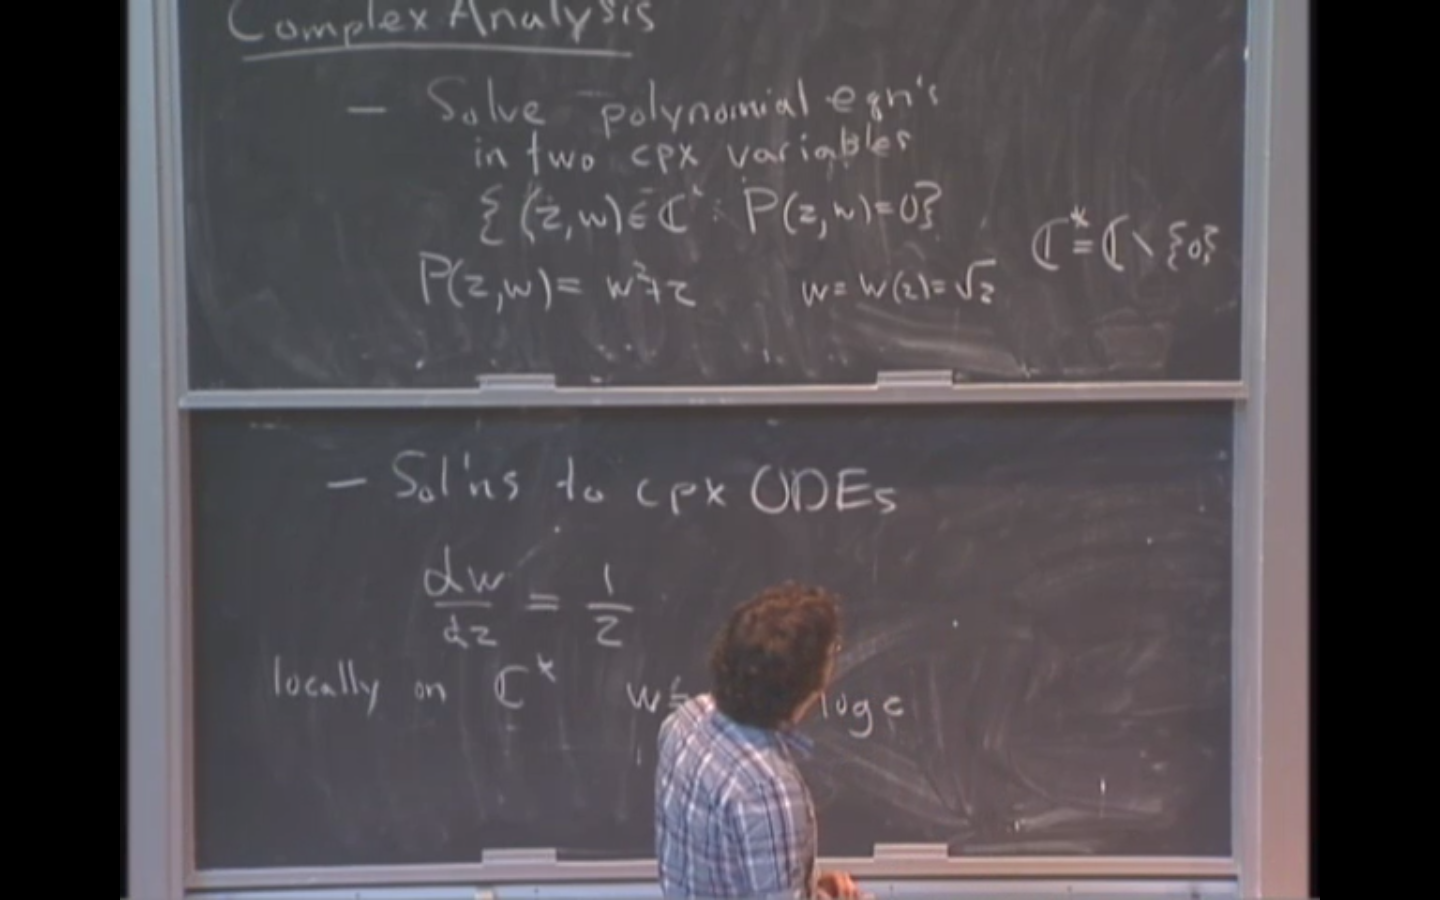 Complex Analysis
- Solve polynomial eqn's
in two cpx variables
{(z,w)∈ℂ² : P(z,w)=0}
ℂ* = ℂ \ {0}
P(z,w) = w²+z w = w(z) = √z
- Sol'ns to cpx ODEs
dw/dz = 1/z
locally on ℂ* w= log